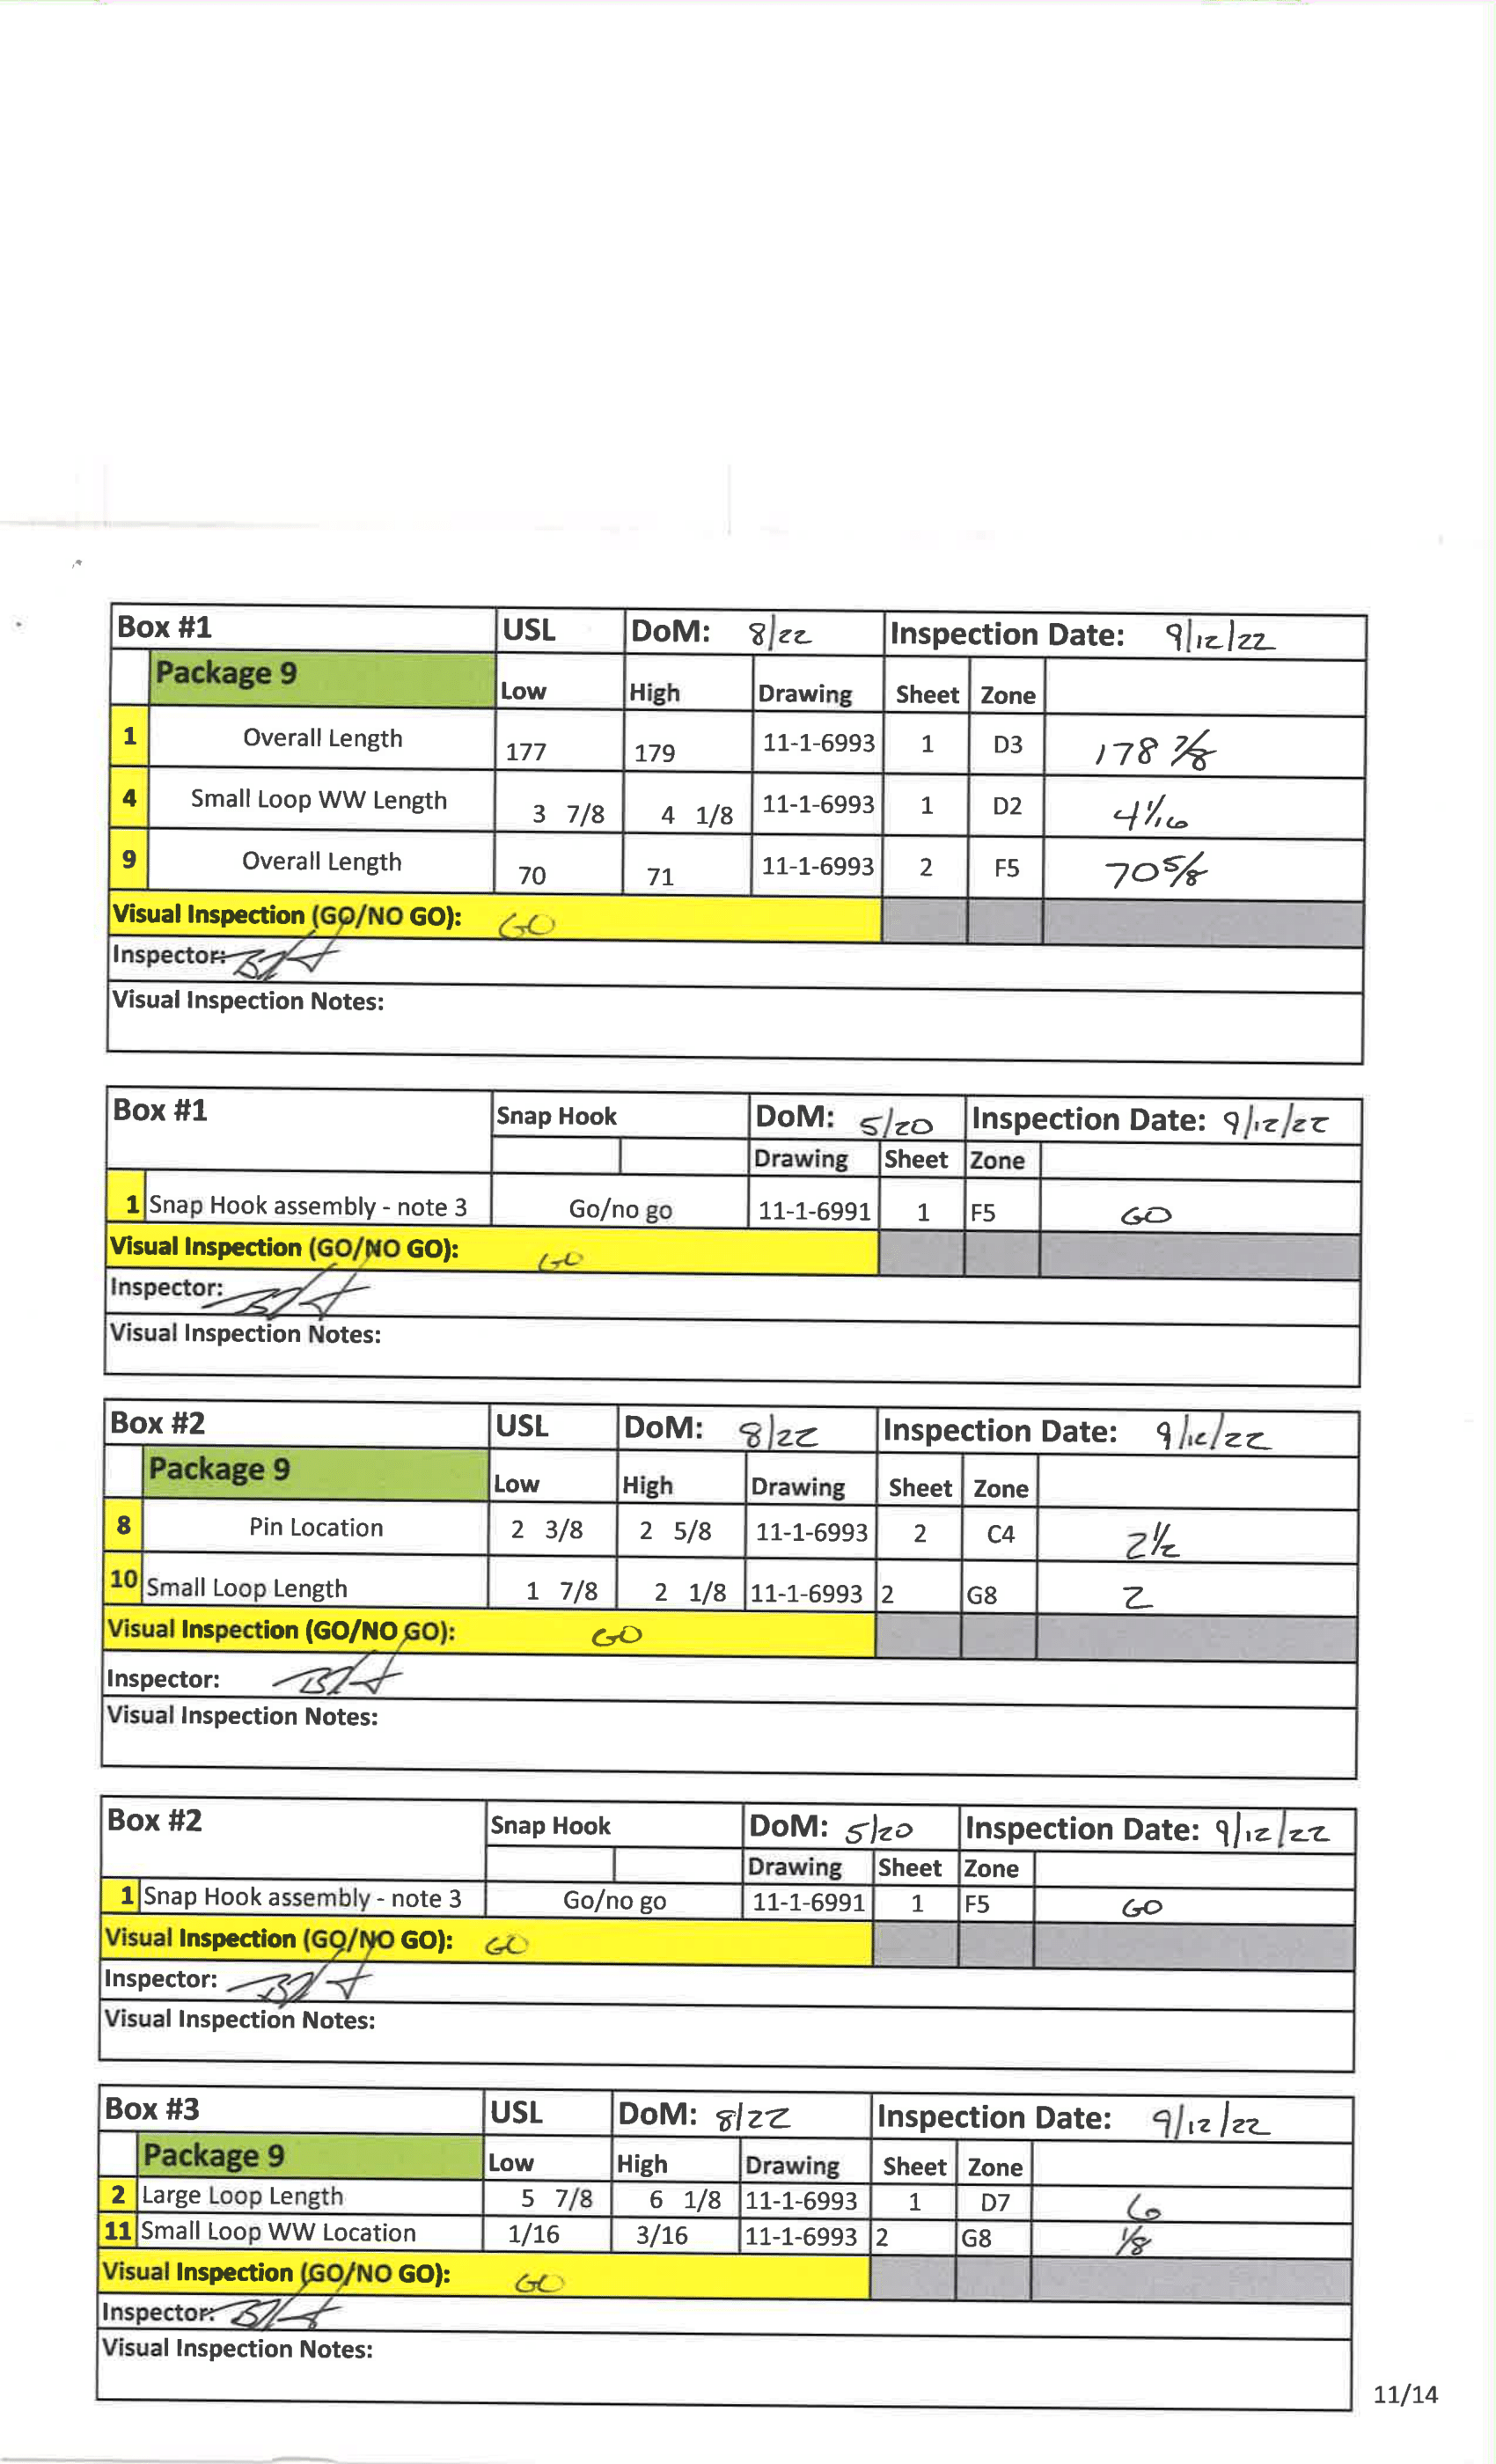 Box #1 USL DoM: 8/22 Inspection Date: 9/12/22
Package 9 Low High Drawing Sheet Zone
1 Overall Length 177 179 11-1-6993 1 D3 178 7/8
4 Small Loop WW Length 3 7/8 4 1/8 11-1-6993 1 D2 4 1/16
9 Overall Length 70 71 11-1-6993 2 F5 70 5/8
Visual Inspection (GO/NO GO): GO
Inspector:
Visual Inspection Notes:
Box #1 Snap Hook DoM: 5/20 Inspection Date: 9/12/22
Drawing Sheet Zone
1 Snap Hook assembly - note 3 Go/no go 11-1-6991 1 F5 GO
Visual Inspection (GO/NO GO): GO
Inspector:
Visual Inspection Notes:
Box #2 USL DoM: 8/22 Inspection Date: 9/12/22
Package 9 Low High Drawing Sheet Zone
8 Pin Location 2 3/8 2 5/8 11-1-6993 2 C4 2 1/2
10 Small Loop Length 1 7/8 2 1/8 11-1-6993 2 G8 2
Visual Inspection (GO/NO GO): GO
Inspector:
Visual Inspection Notes:
Box #2 Snap Hook DoM: 5/20 Inspection Date: 9/12/22
Drawing Sheet Zone
1 Snap Hook assembly - note 3 Go/no go 11-1-6991 1 F5 GO
Visual Inspection (GO/NO GO): GO
Inspector:
Visual Inspection Notes:
Box #3 USL DoM: 8/22 Inspection Date: 9/12/22
Package 9 Low High Drawing Sheet Zone
2 Large Loop Length 5 7/8 6 1/8 11-1-6993 1 D7 6
11 Small Loop WW Location 1/16 3/16 11-1-6993 2 G8 1/8
Visual Inspection (GO/NO GO): GO
Inspector:
Visual Inspection Notes:
11/14